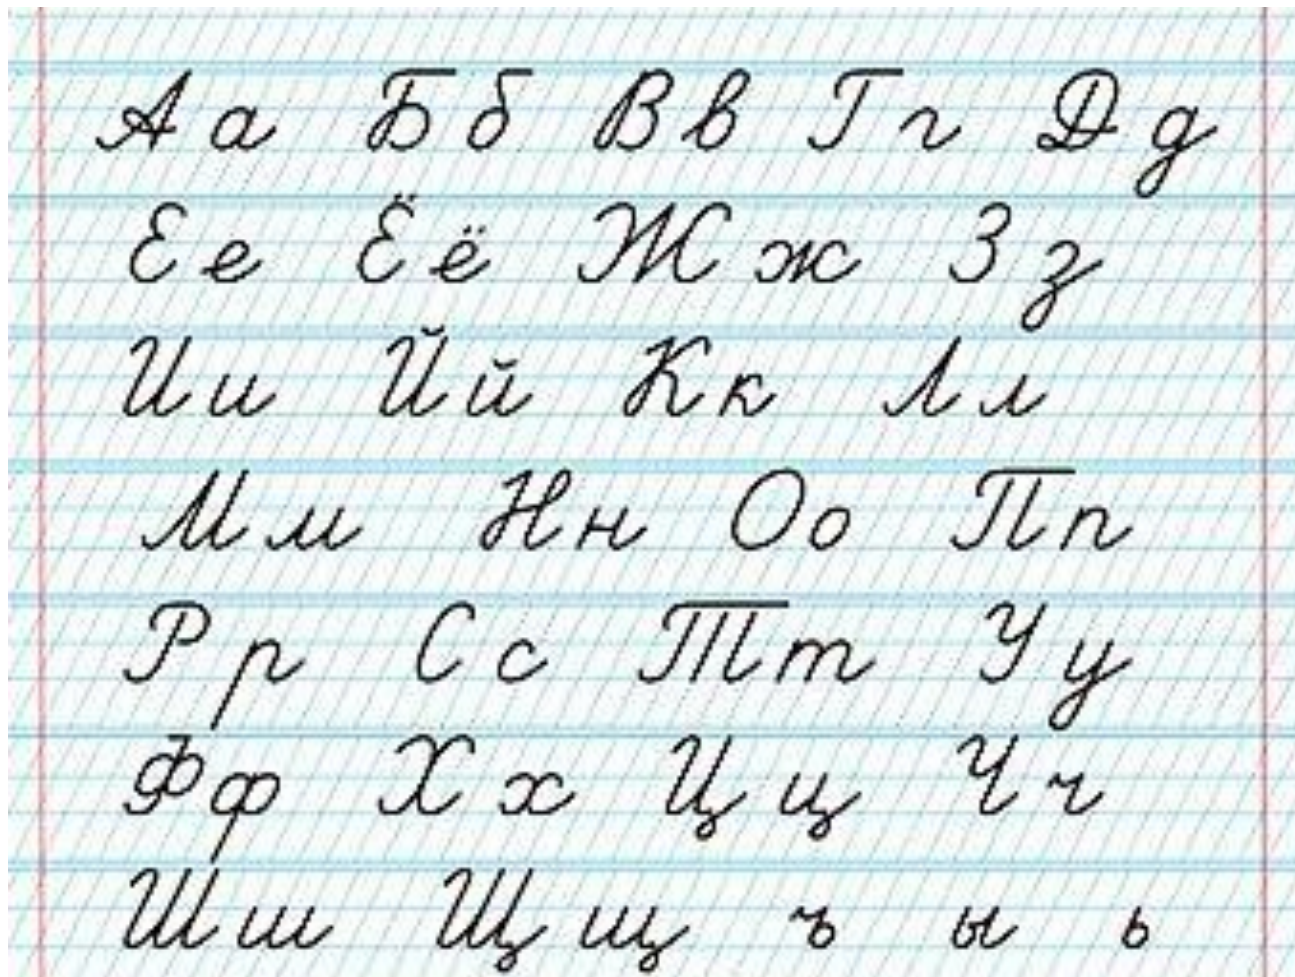 Аа Бб Вв Гг Дд
Ее Ёё Жж Зз
Ии Йй Кк Лл
Мм Нн Оо Пп
Рр Сс Тт Уу
Фф Хх Цц Чч
Шш Щщ ъ ы ь